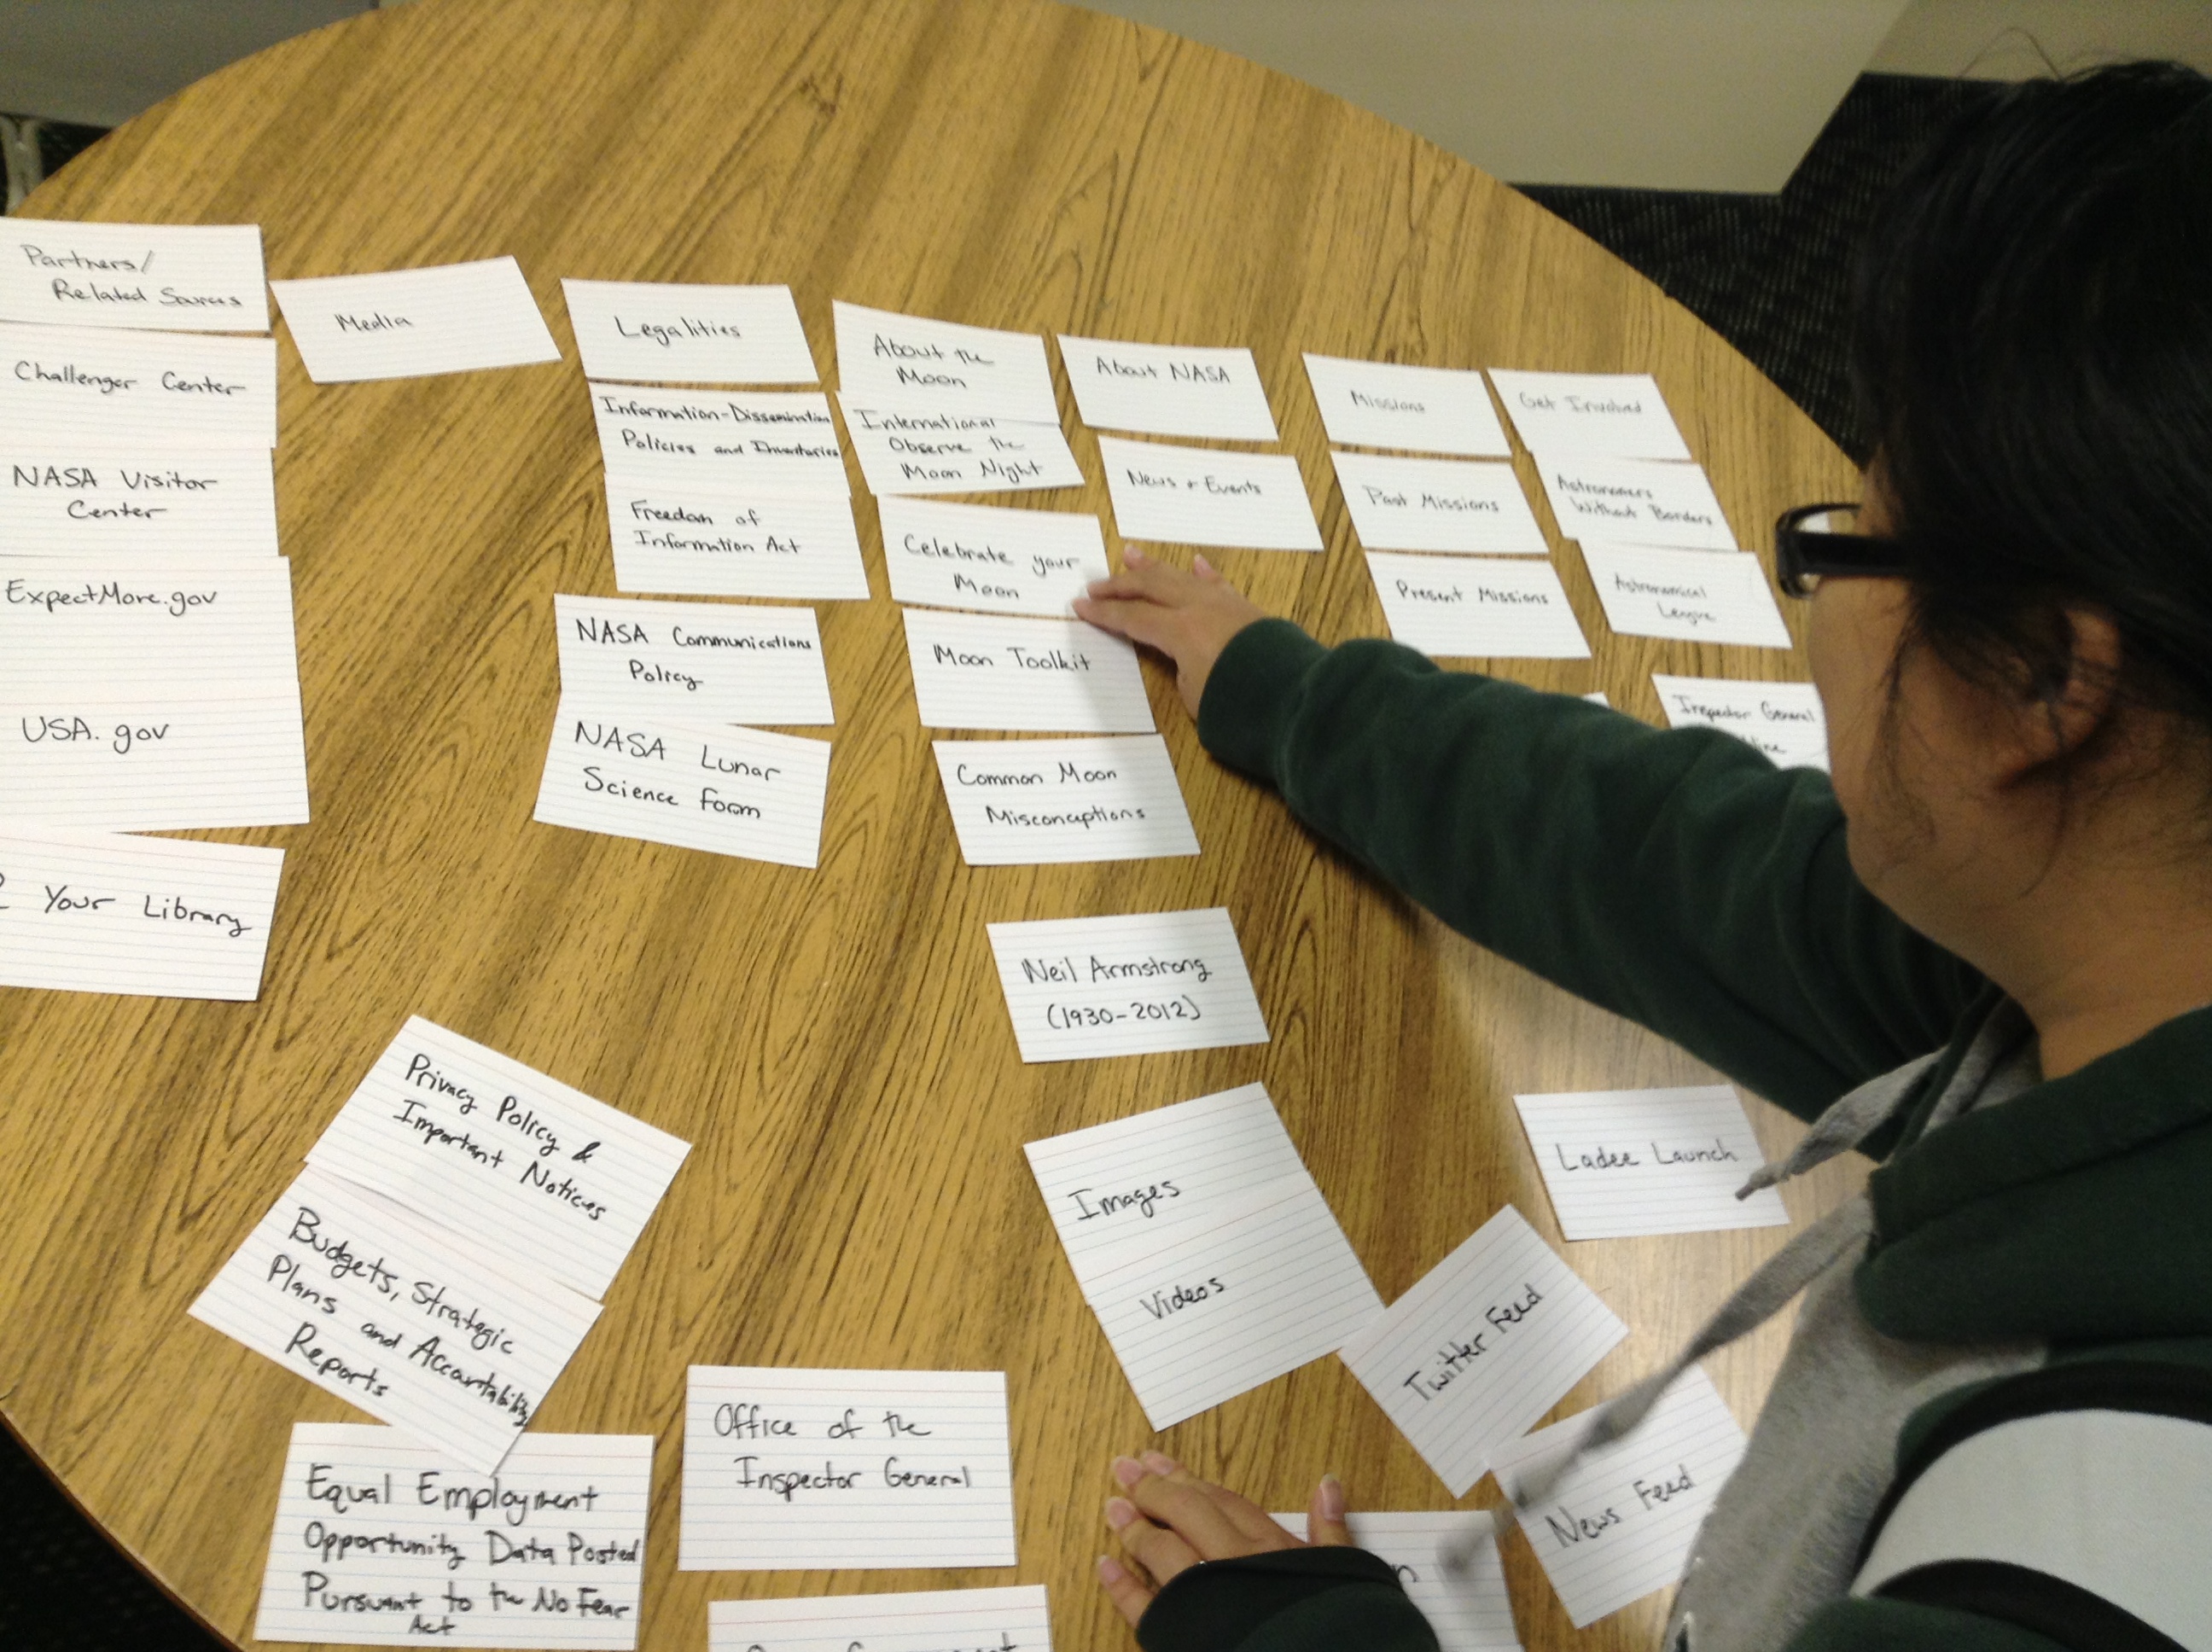 Partners/
Related Sources
Challenger Center
NASA Visitor
Center
ExpectMore.gov
USA.gov
Your Library
Media
Legalities
Information-Dissemination
Policies and Inventories
Freedom of
Information Act
NASA Communications
Policy
NASA Lunar
Science Form
About the
Moon
International
Observe the
Moon Night
Celebrate your
Moon
Moon Toolkit
Common Moon
Misconceptions
Neil Armstrong
(1930-2012)
About NASA
News & Events
Missions
Past Missions
Present Missions
Get Involved
Astronomers
Without Borders
Astronomical
League
Inspector General
Privacy Policy &
Important Notices
Budgets, Strategic
Plans and Accountability
Reports
Equal Employment
Opportunity Data Posted
Pursuant to the No Fear
Act
Office of the
Inspector General
Images
Videos
Twitter Feed
News Feed
Ladee Launch